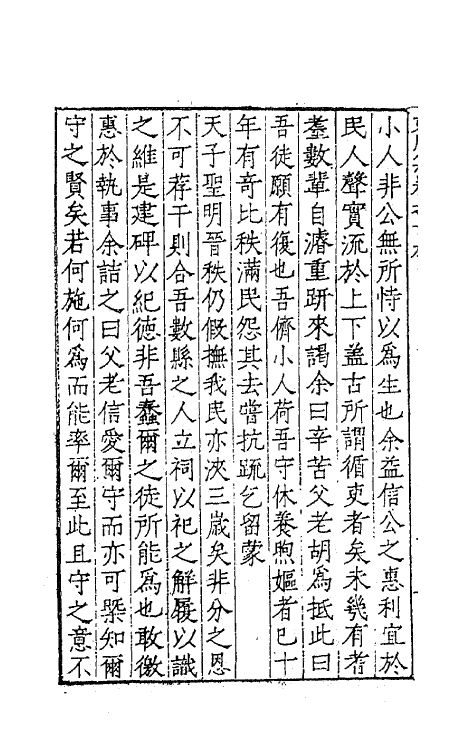 小人非公無所恃以為生也余益信公之惠利宜於
民人聲實流於上下盖古所謂循吏者矣未幾有耆
耋數輩自濬重趼來謁余曰辛苦父老胡為抵此曰
吾徒願有復也吾儕小人荷吾守休養煦嫗者已十
年有奇比秩滿民怨其去嘗抗疏乞留蒙
天子聖明晉秩仍假撫我民亦浹三歲矣非分之恩
不可荐干則合吾數縣之人立祠以祀之解屨以識
之維是建碑以紀德非吾蠢爾之徒所能為也敢徼
惠於執事余詰之曰父老信愛爾守而亦可槩知爾
守之賢矣若何施何為而能率爾至此且守之意不